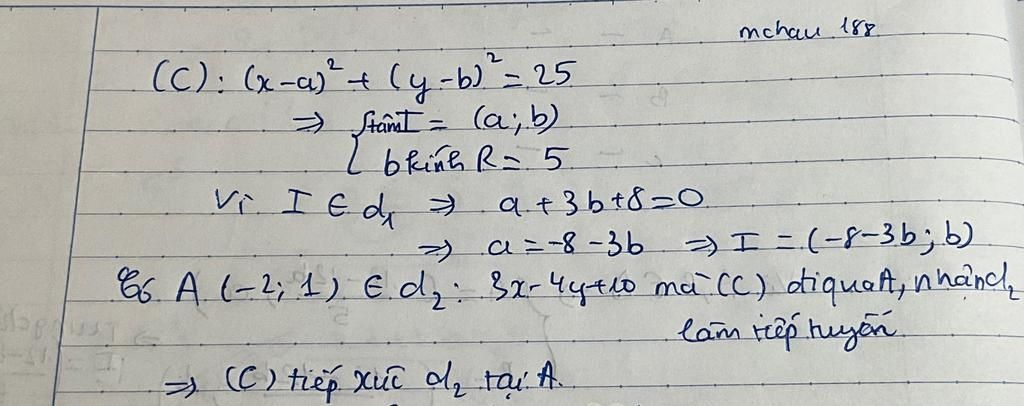 mchau 188
(C): (x-a)² + (y-b)² = 25
⇒ { tâm I = (a; b)
b kính R = 5
Vì I ∈ d₁ ⇒ a + 3b + 8 = 0
⇒ a = -8 - 3b ⇒ I = (-8-3b; b)
Có A (-2; 1) ∈ d₂: 3x - 4y + 10 mà (C) đi qua A, nhận d₂
làm tiếp tuyến
⇒ (C) tiếp xúc d₂ tại A.